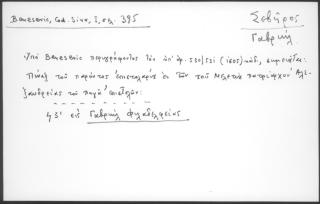 Benesevic, Cod. Sina, I, σελ. 395
Σεβῆρος
Γαβριήλ
Ὑπὸ Benesevic περιγράφοντος τὸν ὑπ' ἀρ. 530/531 (1605) κώδ., σημειοῦται:
Πίναξ τοῦ παρόντος ἐπισταλαρίου ἐκ τῶν τοῦ Μελετίου πατριάρχου Ἀλε-
ξανδρείας τοῦ πηγᾶ ἐπιστολῶν:
εἰς Γαβριήλ φιλαδελφείας